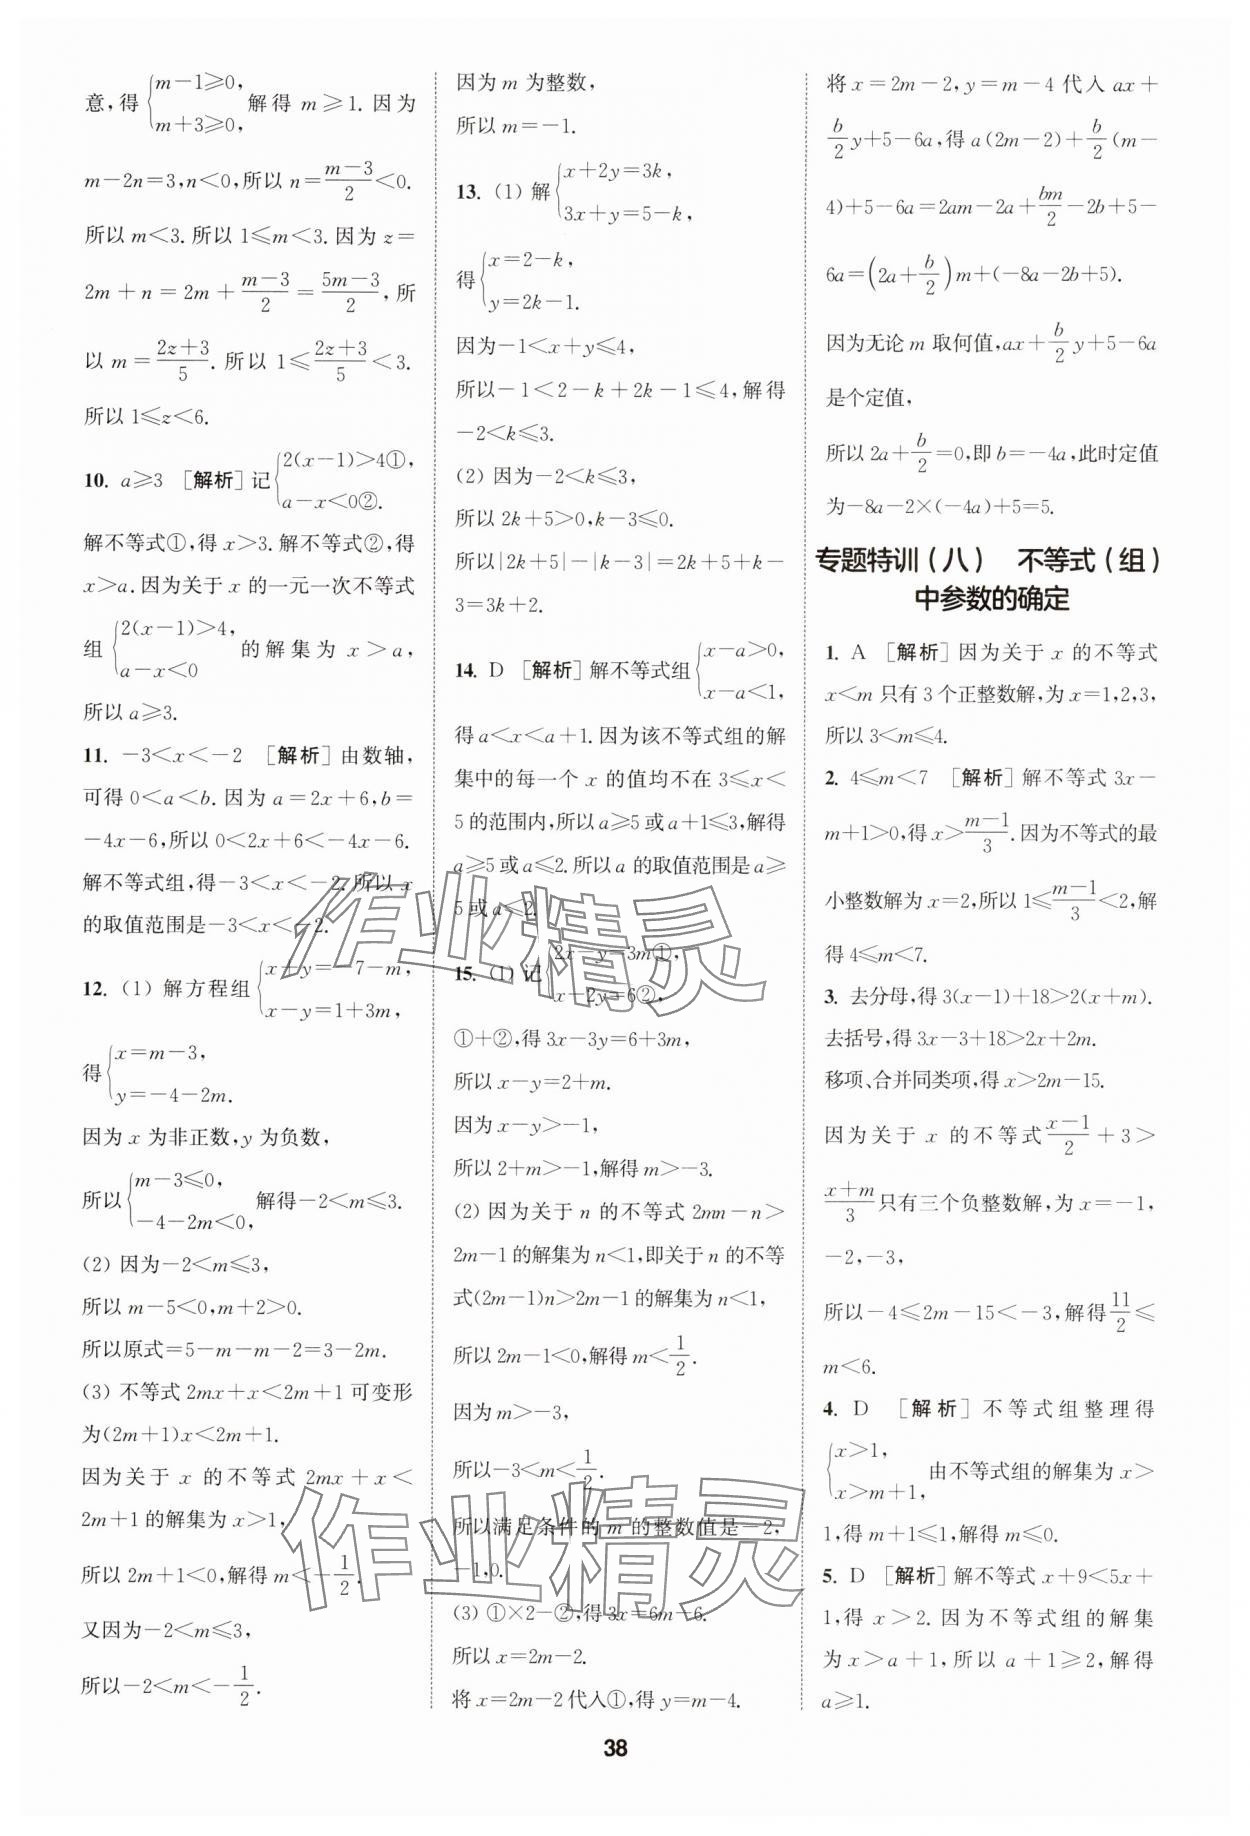 意,得{m-1≥0, m+3≥0, 解得 m≥1. 因为
m-2n=3,n<0,所以 n=(m-3)/2<0.
所以 m<3. 所以 1≤m<3. 因为 z=
2m+n=2m+(m-3)/2=(5m-3)/2,所
以 m=(2z+3)/5. 所以 1≤(2z+3)/5<3.
所以 1≤z<6.
10. a≥3 [解析]记{2(x-1)>4①, a-x<0②.
解不等式①,得 x>3. 解不等式②,得
x>a. 因为关于 x 的一元一次不等式
组{2(x-1)>4, a-x<0 的解集为 x>a,
所以 a≥3.
11. -3<x<-2 [解析]由数轴,
可得 0<a<b. 因为 a=2x+6,b=
-4x-6,所以 0<2x+6<-4x-6.
解不等式组,得-3<x<-2. 所以 x
的取值范围是-3<x<-2.
12. (1) 解方程组{x+y=-7-m, x-y=1+3m,
得{x=m-3, y=-4-2m.
因为 x 为非正数,y 为负数,
所以{m-3≤0, -4-2m<0, 解得-2<m≤3.
(2) 因为-2<m≤3,
所以 m-5<0,m+2>0.
所以原式=5-m-m-2=3-2m.
(3) 不等式 2mx+x<2m+1 可变形
为(2m+1)x<2m+1.
因为关于 x 的不等式 2mx+x<
2m+1 的解集为 x>1,
所以 2m+1<0,解得 m<-1/2.
又因为-2<m≤3,
所以-2<m<-1/2.
因为 m 为整数,
所以 m=-1.
13. (1) 解{x+2y=3k, 3x+y=5-k,
得{x=2-k, y=2k-1.
因为-1<x+y≤4,
所以-1<2-k+2k-1≤4,解得
-2<k≤3.
(2) 因为-2<k≤3,
所以 2k+5>0,k-3≤0.
所以|2k+5|-|k-3|=2k+5+k-
3=3k+2.
14. D [解析]解不等式组{x-a>0, x-a<1,
得 a<x<a+1. 因为该不等式组的解
集中的每一个 x 的值均不在 3≤x<
5 的范围内,所以 a≥5 或 a+1≤3,解得
a≥5 或 a≤2. 所以 a 的取值范围是 a≥
5 或 a≤2.
15. (1) 记{2x-y=3m①, x-2y=6②,
①+②,得 3x-3y=6+3m,
所以 x-y=2+m.
因为 x-y>-1,
所以 2+m>-1,解得 m>-3.
(2) 因为关于 n 的不等式 2mn-n>
2m-1 的解集为 n<1,即关于 n 的不等
式(2m-1)n>2m-1 的解集为 n<1,
所以 2m-1<0,解得 m<1/2.
因为 m>-3,
所以-3<m<1/2.
所以满足条件的 m 的整数值是-2,
-1,0.
(3) ①×2-②,得 3x=6m-6.
所以 x=2m-2.
将 x=2m-2 代入①,得 y=m-4.
将 x=2m-2,y=m-4 代入 ax+
b/2 y+5-6a,得 a(2m-2)+b/2(m-
4)+5-6a=2am-2a+bm/2-2b+5-
6a=(2a+b/2)m+(-8a-2b+5).
因为无论 m 取何值,ax+b/2 y+5-6a
是个定值,
所以 2a+b/2=0,即 b=-4a,此时定值
为-8a-2×(-4a)+5=5.
专题特训(八) 不等式(组)
中参数的确定
1. A [解析]因为关于 x 的不等式
x<m 只有 3 个正整数解,为 x=1,2,3,
所以 3<m≤4.
2. 4≤m<7 [解析]解不等式 3x-
m+1>0,得 x>(m-1)/3. 因为不等式的最
小整数解为 x=2,所以 1≤(m-1)/3<2,解
得 4≤m<7.
3. 去分母,得 3(x-1)+18>2(x+m).
去括号,得 3x-3+18>2x+2m.
移项、合并同类项,得 x>2m-15.
因为关于 x 的不等式(x-1)/2+3>
(x+m)/3 只有三个负整数解,为 x=-1,
-2,-3,
所以-4≤2m-15<-3,解得 11/2≤
m<6.
4. D [解析]不等式组整理得
{x>1, x>m+1, 由不等式组的解集为 x>
1,得 m+1≤1,解得 m≤0.
5. D [解析]解不等式 x+9<5x+
1,得 x>2. 因为不等式组的解集
为 x>a+1,所以 a+1≥2,解得
a≥1.
作业精灵
作业精灵
38